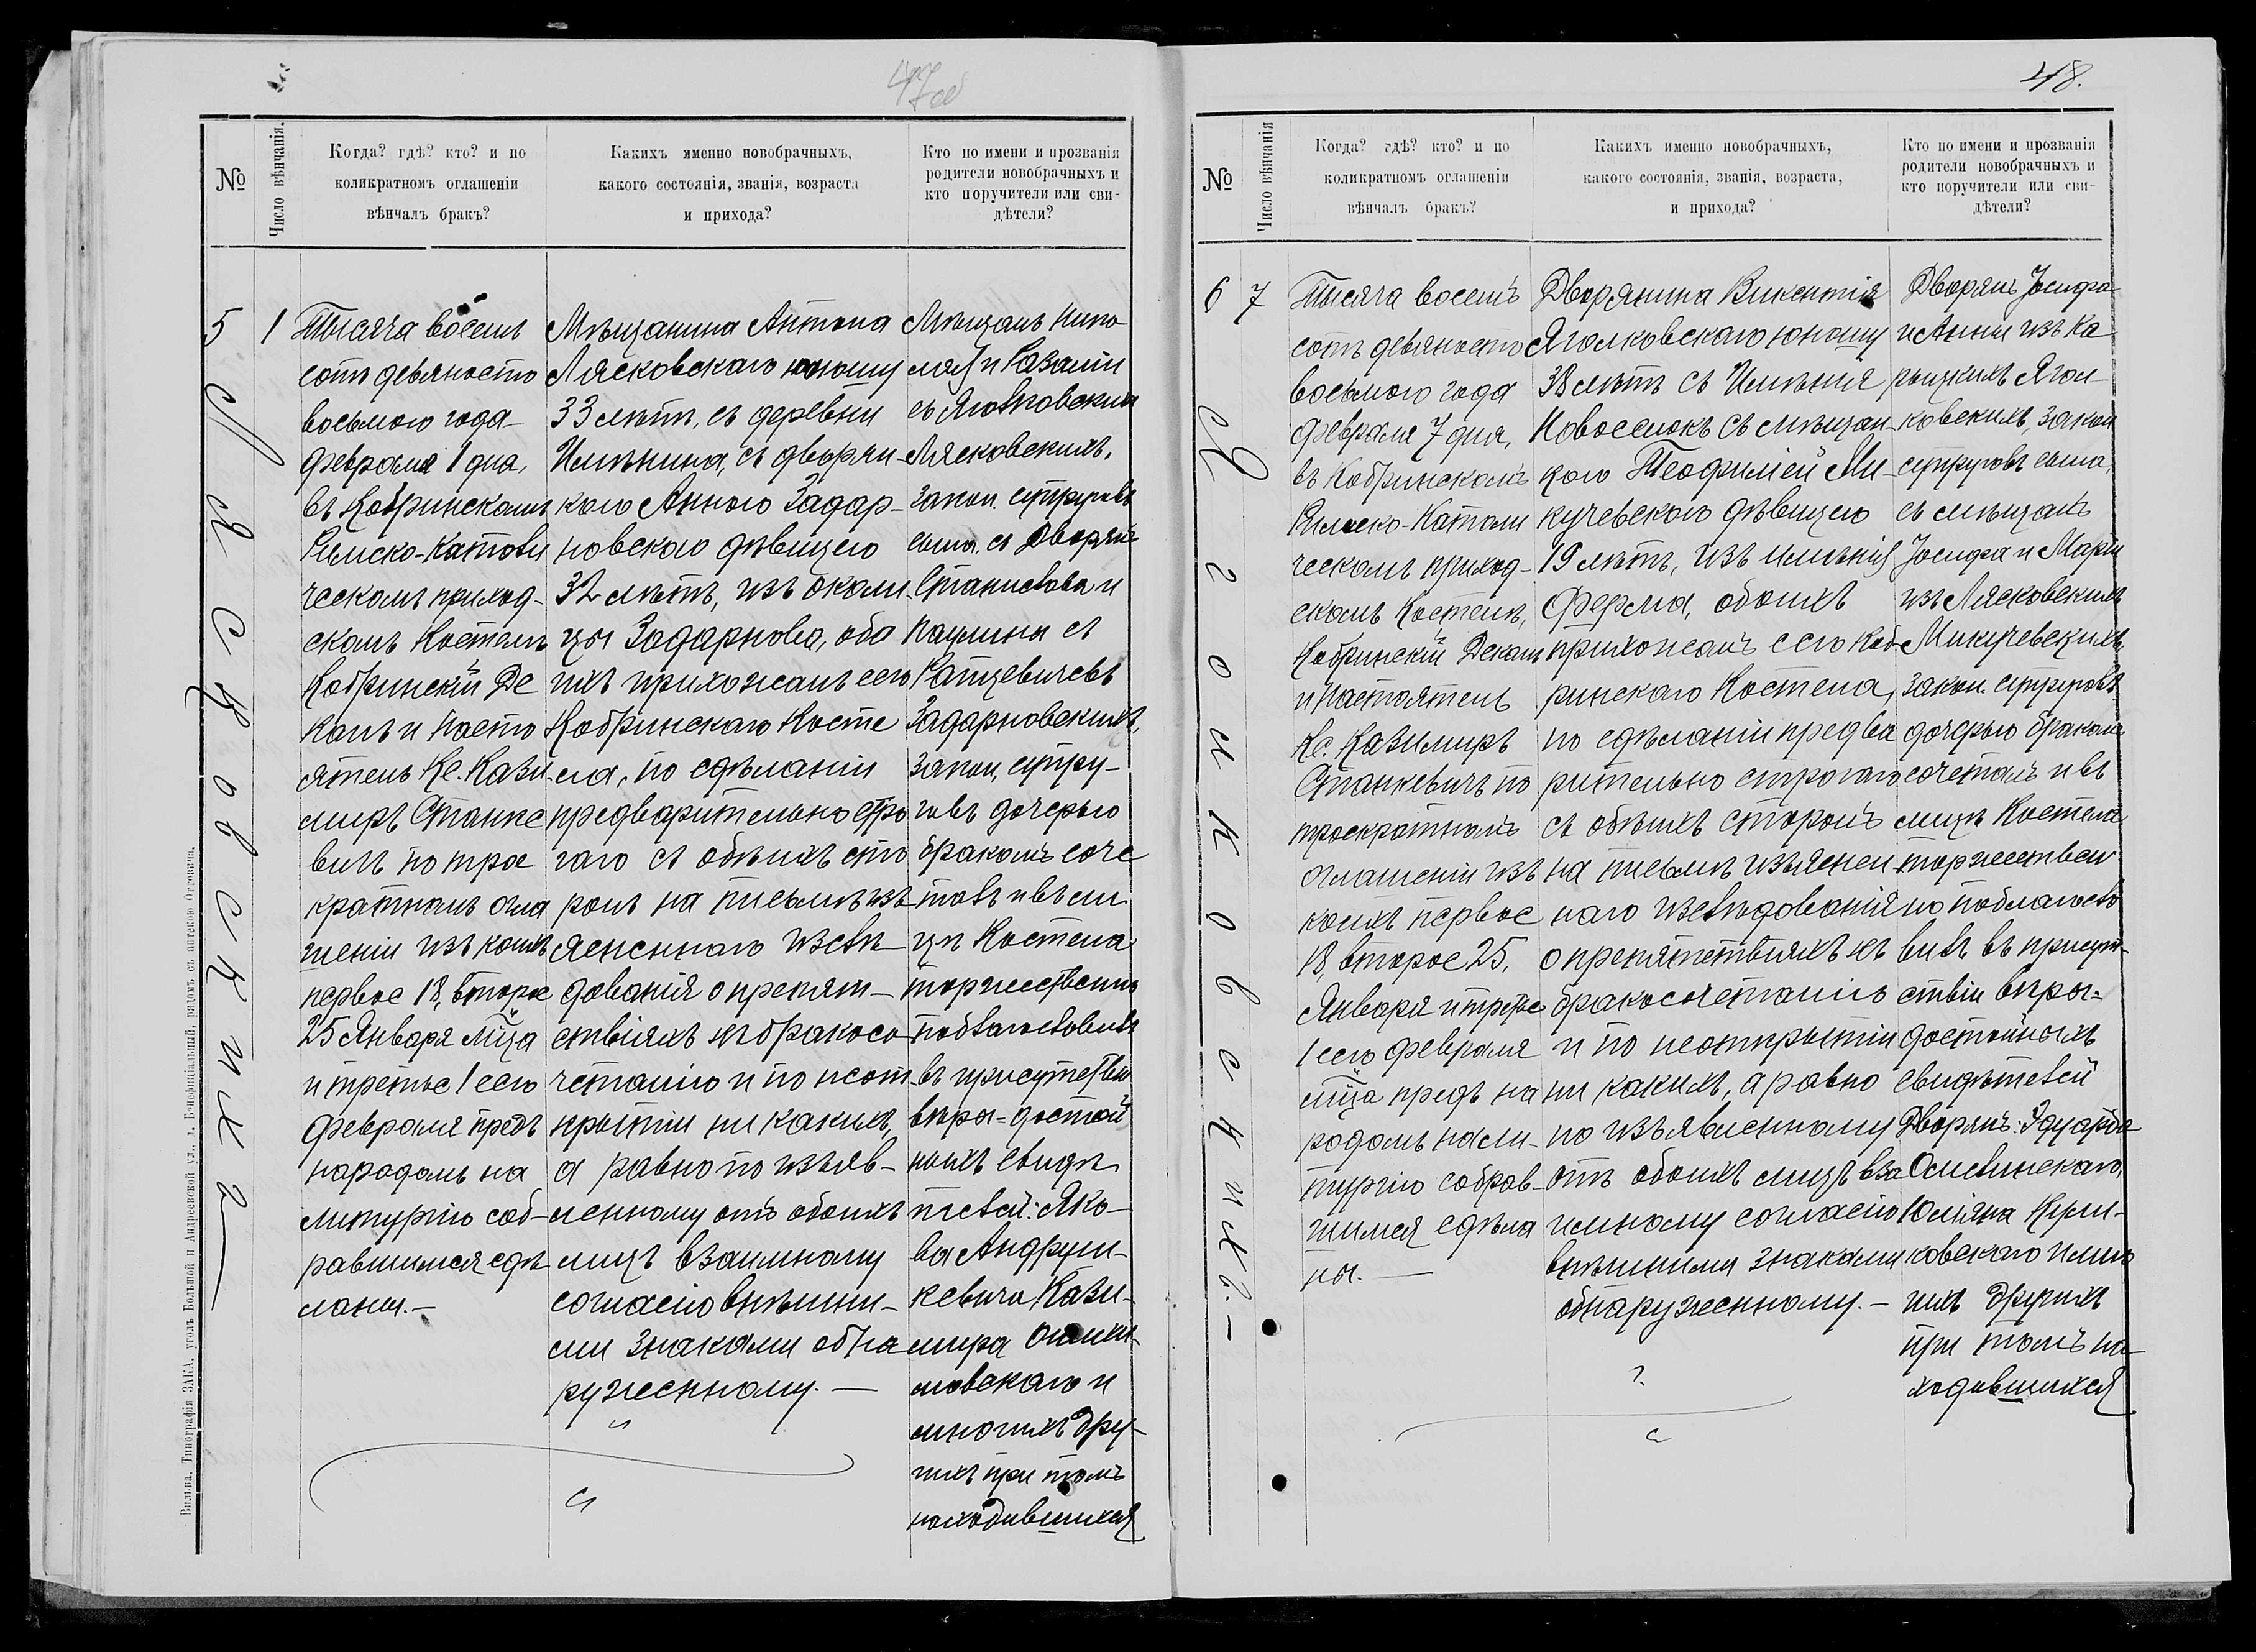 47об
№
Число вѣнчанія.
Когда? гдѣ? кто? и по
коликратномъ оглашеніи
вѣнчалъ бракъ?
Какихъ именно новобрачныхъ,
какого состоянія, званія, возраста
и прихода?
Кто по имени и прозванія
родители новобрачныхъ и
кто поручители или сви-
дѣтели?
5
Лясковскихъ
1
Тысяча восемь
сотъ девяносто
восьмого года
Февраля 1 дня,
въ Кобринскомъ
Римско-Католи
ческомъ приход-
скомъ Костелѣ
Кобринскій Де
канъ и Насто
ятель Кс. Кази
миръ Станке
вичъ по трое
кратномъ огла
шеніи изъ коихъ
первое 18, второе
25 Января мца
и третье 1 сего
Февраля предъ
народомъ на
литургію соб-
равшимся сдѣ
ланы.—
Мѣщанина Антона
Лясковскаго юношу
33 лѣтъ, съ деревни
Имѣнина, съ дворян-
кою Анною Задар-
новскою дѣвицею
32 лѣтъ, изъ околи
цы Задарнова, обо
ихъ прихожанъ сего
Кобринскаго Косте
ла, по сдѣланіи
предварительно стро
гаго съ обѣихъ сто
ронъ на письмѣ изъ
ясненнаго изслѣ
дованія о препят-
ствіяхъ къ бракосо
четанію и по неот
крытіи ни какихъ,
а равно по изъяв-
ленному отъ обоихъ
лицъ взаимному
согласію внѣшни-
ми знаками обна
руженному.—
Мѣщанъ Нико
лая и Розаліи
съ Яголковскихъ
Лясковскихъ,
закон. супруговъ
сына, съ Дворянъ
Станислава и
Паулины съ
Ратцевичевъ
Задарновскихъ,
закон. супру-
говъ дочерью
бракомъ соче
талъ и въ ли
цѣ Костела
торжественно
поблагословилъ
въ присутствіи
вѣры-достой
ныхъ свидѣ
телей: Яко-
ва Андруш-
кевича, Кази-
мира
и
многихъ дру-
гихъ при томъ
находившихся
Вильна, Типографія ЗАКА, уголъ Большой и Андреевской ул., д. Бонифаціальный, рядомъ съ аптекою Отговича.
48.
№
Число вѣнчанія
Когда? гдѣ? кто? и по
коликратномъ оглашеніи
вѣнчалъ бракъ?
Какихъ именно новобрачныхъ,
какого состоянія, званія, возраста,
и прихода?
Кто по имени и прозванія
родители новобрачныхъ и
кто поручители или сви-
дѣтели?
6
Яголковскихъ.—
7
Тысяча восемь
сотъ девяносто
восьмого года
Февраля 7 дня,
въ Кобринскомъ
Римско-Католи
ческомъ приход-
скомъ Костелѣ,
Кобринскій Деканъ
и Настоятель
Кс. Казимиръ
Станкевичъ по
троекратномъ
оглашеніи изъ
коихъ первое
18, второе 25,
Января и третье
1 сего Февраля
мца предъ на
родомъ на ли-
тургію собрав-
шимся сдѣла
ны.—
Дворянина Викентія
Яголковскаго юношу
38 лѣтъ съ Имѣнія
Новоселокъ съ мѣщан-
кою Теофилією Ми-
кучевскою дѣвицею
19 лѣтъ, изъ имѣнія
Ферма, обоихъ
прихожанъ сего Коб-
ринскаго Костела,
по сдѣланіи предва
рительно строгаго
съ обѣихъ сторонъ
на письмѣ изъяснен
наго изслѣдованія
о препятствіяхъ къ
бракосочетанію
и по неоткрытіи
ни какихъ, а равно
по изъявленному
отъ обоихъ лицъ вза
имному согласію
внѣшними знаками
обнаруженному.—
Дворянъ Іосифа
и Анны изъ Ка
рыцкихъ Ягол-
ковскихъ, закон
супруговъ сына,
съ мѣщанъ
Іосифа и Маріи
изъ Лясковскихъ
Микучевскихъ,
закон. супруговъ
дочерью бракомъ
сочеталъ и въ
лицѣ Костела
торжествен
но поблагосло
вилъ въ присут-
ствіи вѣры-
достойныхъ
свидѣтелей
Дворянъ: Эдуарда
Юліяна
и мно
гихъ другихъ
при томъ на-
ходившихся